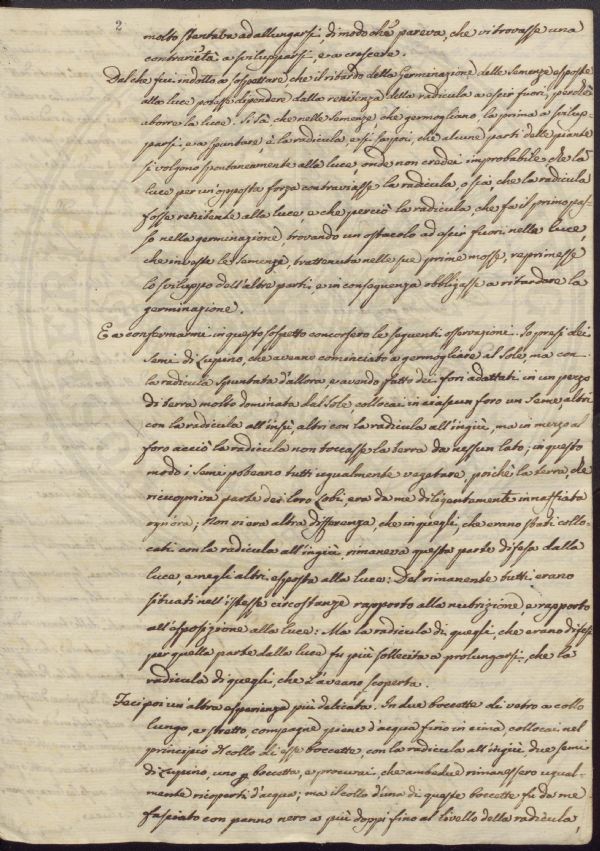 2
molto stentava ad allungarsi di modo chè pareva, che vi trovasse una
contrarietà a svilupparsi, e a crescere.
Dal che fui indotto a sospettare, che il ritardo della Germinazione delle semenze esposte
alla luce potesse dipendere dalla renitenza della radicula a escir fuori, perchè
aborre la luce. Si sà che nelle semenze che germogliano, la prima a svilup-
parsi, e a spuntare è la radicula, e si sa poi, che alcune parti delle piante
si volgono spontaneamente alla luce, onde non credei improbabile che la
luce per un'opposta forza contraviasse la radicula, o sia, che la radicula
fosse renitente alla luce, e che perciò la radicula, che fa il primo pas-
so nella germinazione, trovando un ostacolo ad escir fuori nella luce,
che investe le semenze, trattenuta nelle sue prime mosse, reprimesse
lo sviluppo dell'altre parti, e in conseguenza obbligasse a ritardare la
germinazione.
E a confermarmi in questo sospetto concorsero le seguenti osservazioni. Io presi dei
semi di Lupino, che aveano cominciato a germogliare al Sole, ma con
la radicula spuntata d'allora, e avendo fatto dei fori adattati in un pezzo
di terra molto dominata dal Sole, collocai in ciascun foro un seme, altri
con la radicula all'insù altri con la radicula all'ingiù, ma in mezzo al
foro acciò la radicula non toccasse la terra da nessun lato; in questo
modo i semi poteano tutti ugualmente vegetare, poichè la terra, che
ricuopriva parte dei loro Lobi, era da me diligentemente innaffiata
ognora; Non vi era altra differenza, che in quegli, che erano stati collo-
cati con la radicula all'ingiù, rimaneva questa parte difesa dalla
luce, e negli altri esposta alla luce: Del rimanente tutti erano
situati nell'istesse circostanze rapporto alla nutrizione, e rapporto
all'esposizione alla luce: Ma la radicula di questi, che erano difesi
per quella parte dalla luce fu più sollecita a prolungarsi, che la
radicula di quegli, che l'aveano scoperta.
Feci poi un'altra esperienza più delicata. In due boccette di vetro a collo
lungo, e stretto, compagne piene d'acqua fino in cima collocai nel
principio del collo di esse boccette, con la radicula all'ingiù, due semi
di Lupino, uno per boccetta, e procurai, che ambedue rimanessero ugual-
mente ricoperti d'acqua; ma il collo d'una di queste boccette fu da me
fasciato con panno nero a più doppi fino al livello della radicula,